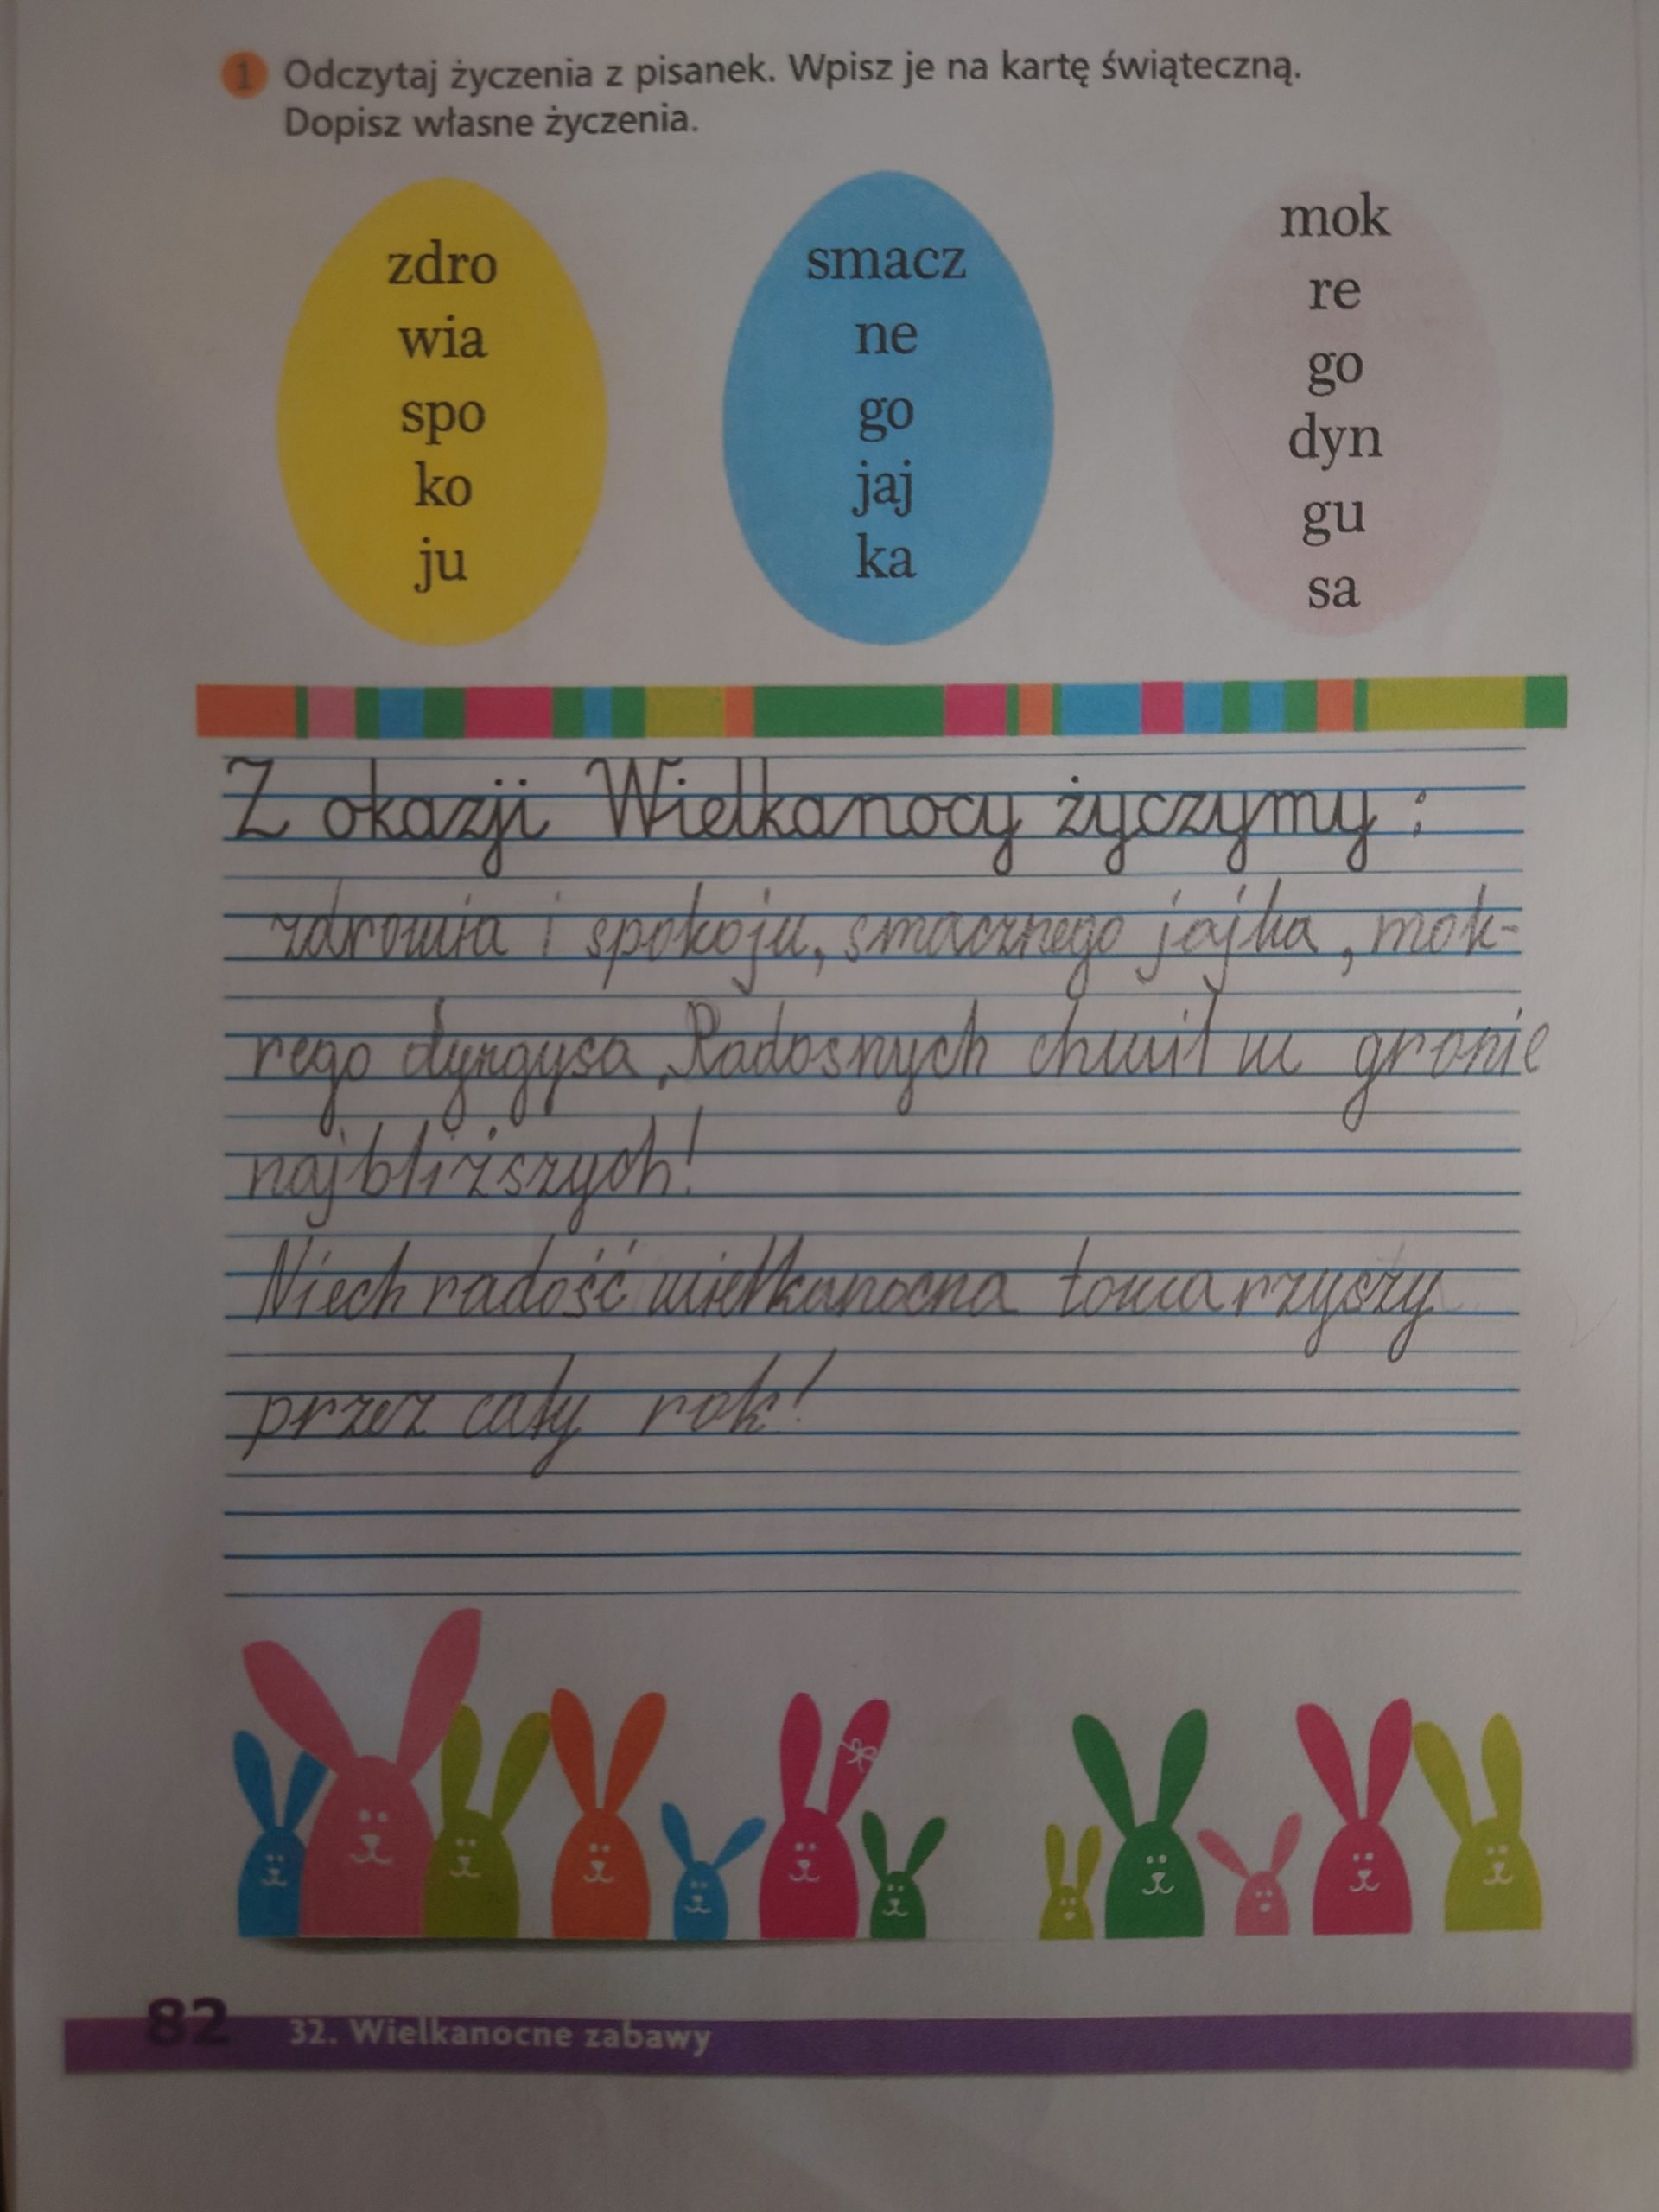 1 Odczytaj życzenia z pisanek. Wpisz je na kartę świąteczną.
Dopisz własne życzenia.
zdro
wia
spo
ko
ju
smacz
ne
go
jaj
ka
mok
re
go
dyn
gu
sa
Z okazji Wielkanocy życzymy :
zdrowia i spokoju, smacznego jajka, mok-
rego dyngusa, Radosnych chwil w gronie
najbliższych!
Niech radość wielkanocna towarzyszy
przez cały rok!
82 32. Wielkanocne zabawy